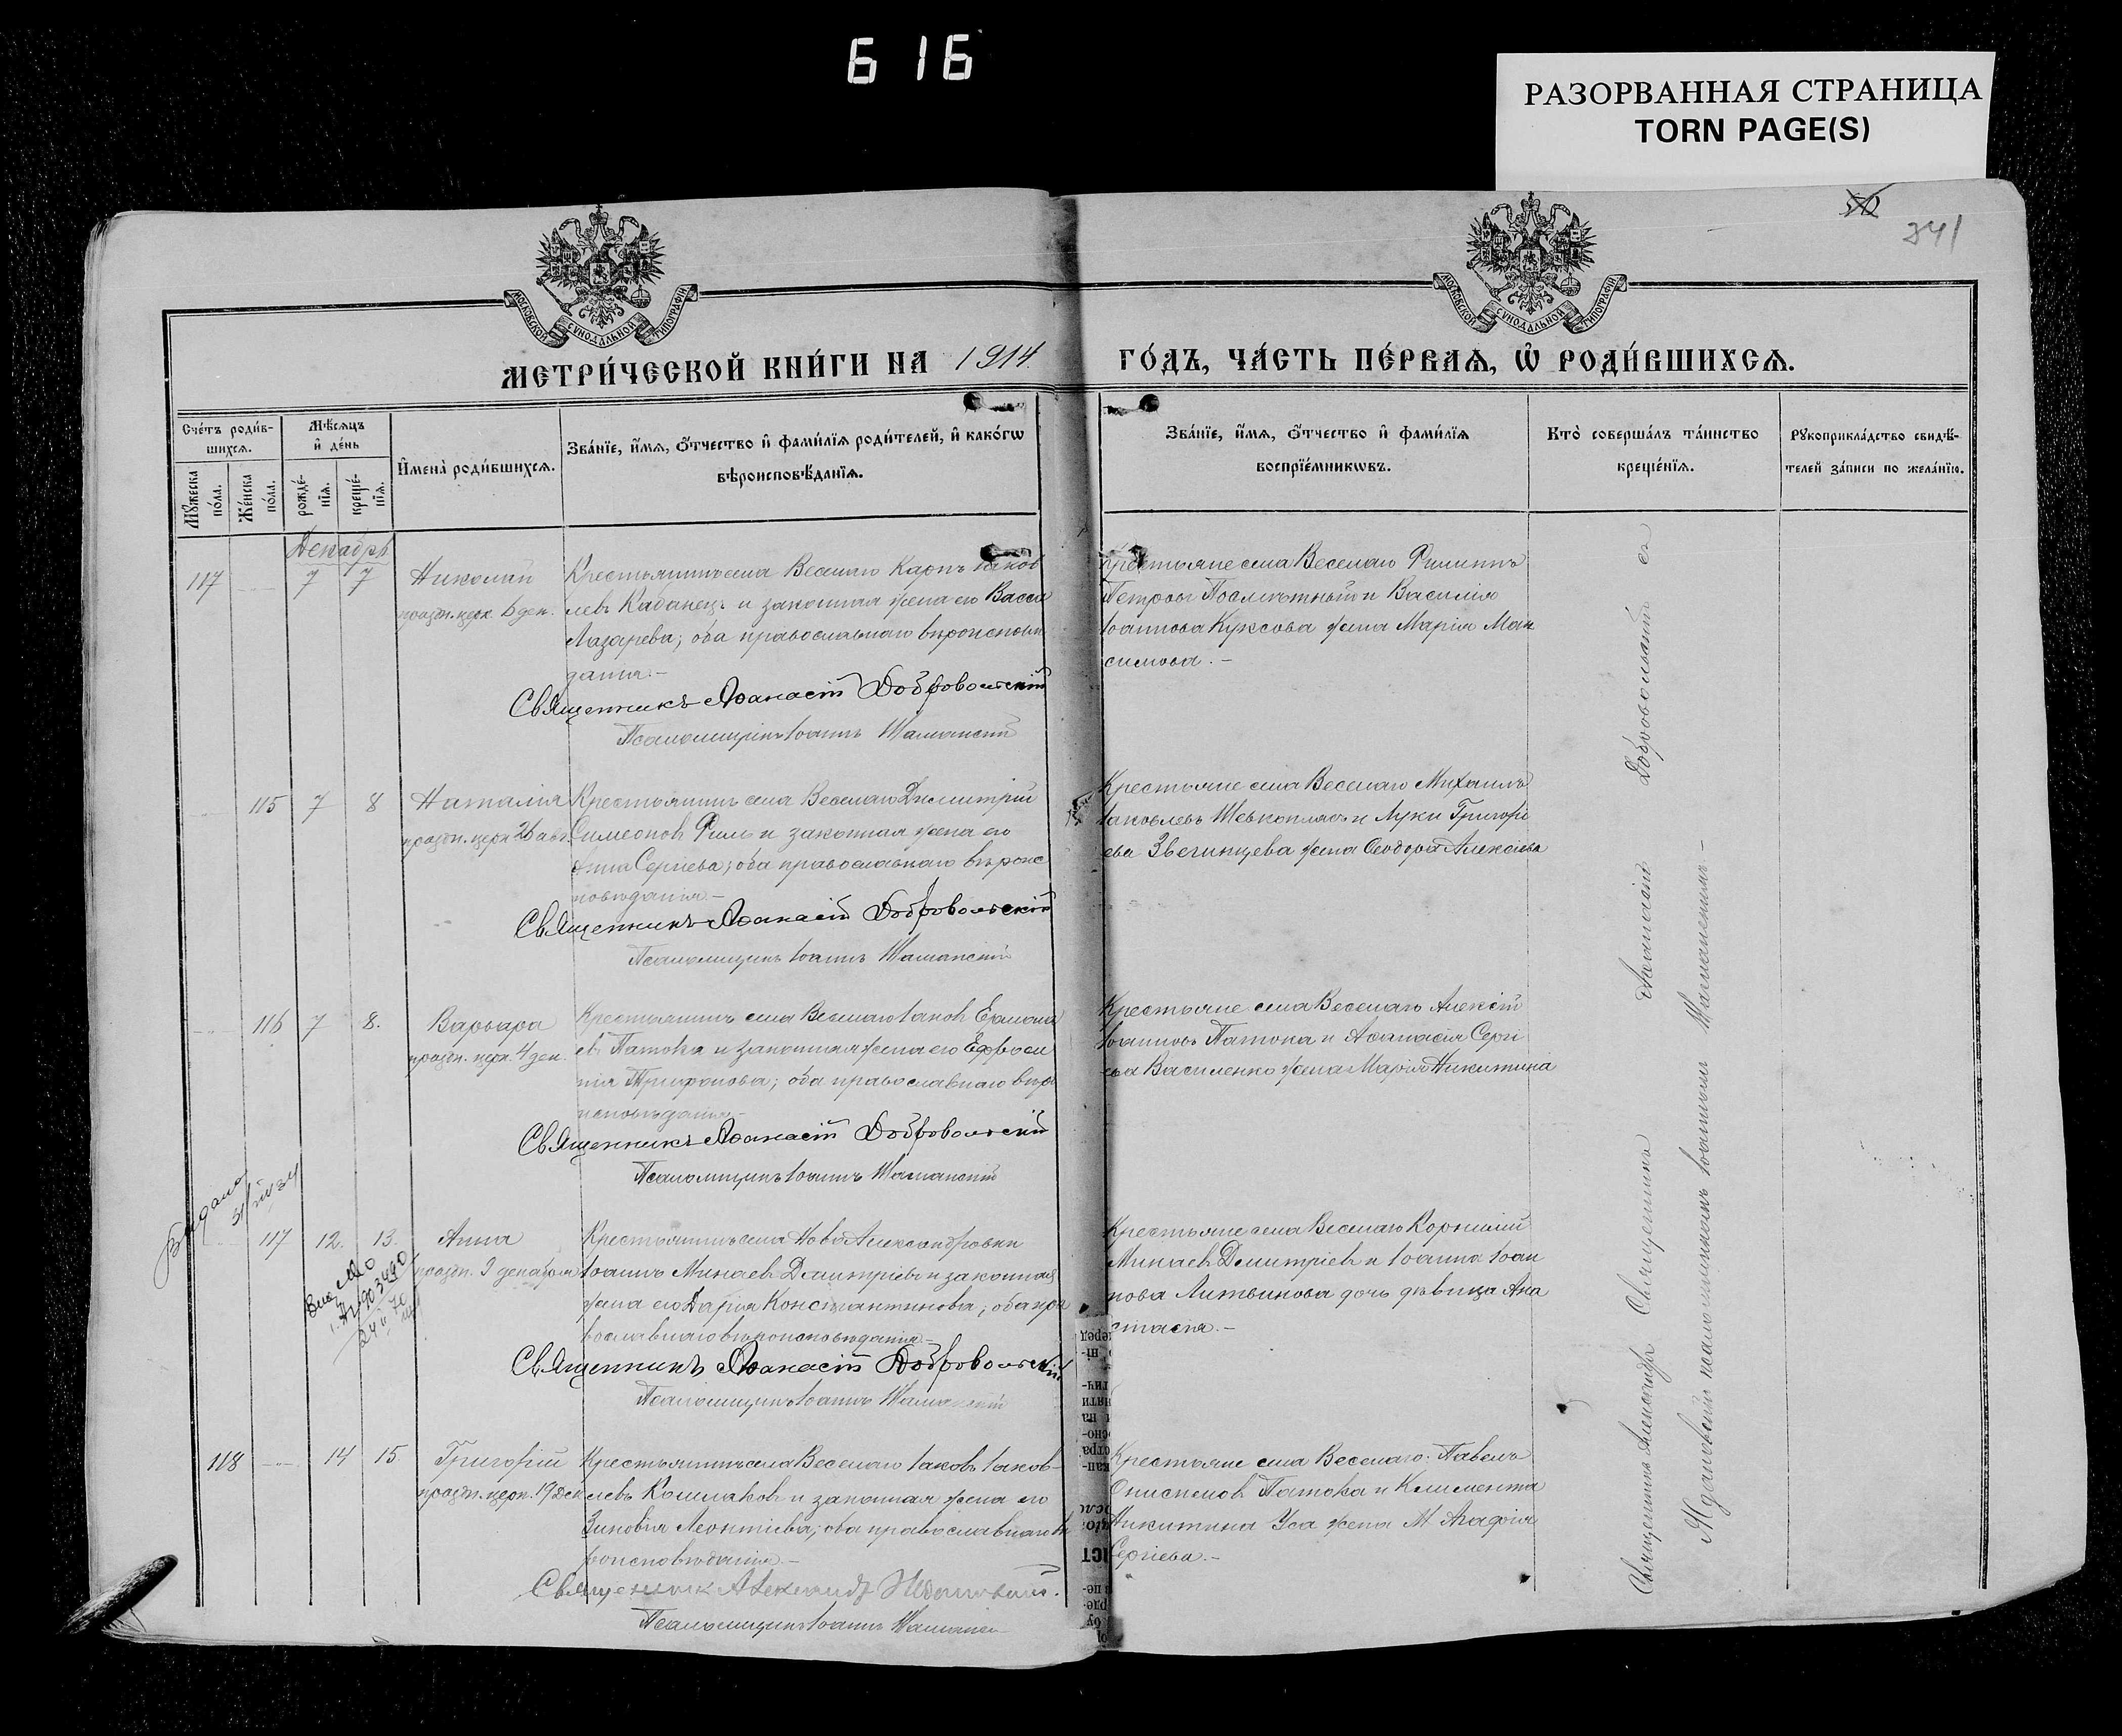 616
РАЗОРВАННАЯ СТРАНИЦА
TORN PAGE(S)
50
341
МОСКОВСКОЙ СѴНОДАЛЬНОЙ ТИПОГРАФІИ
МОСКОВСКОЙ СѴНОДАЛЬНОЙ ТИПОГРАФІИ
МЕТРИ́ЧЕСКОЙ КНИ́ГИ НА 1914 ГО́ДЪ, ЧА́СТЬ ПЕ́РВАѦ, Ѡ҆ РОДИ́ВШИХСѦ.
Сче́тъ роди́в-
шихсѧ.
Мꙋ́жеска по́ла.
Же́нска по́ла.
Мѣ́сѧцъ
и҆ де́нь
рожде́-
нїѧ.
креще́-
нїѧ.
И҆мена̀ роди́вшихсѧ.
Зва́нїе, и҆́мѧ, ѻ҆́тчество и҆ фами́лїѧ роди́телей, и҆ како́гѡ
вѣроисповѣ́данїѧ.
Зва́нїе, и҆́мѧ, ѻ҆́тчество и҆ фами́лїѧ
воспрїе́мникѡвъ.
Кто̀ соверша́лъ та́инство
креще́нїѧ.
Рꙋкоприкла́дство свидѣ́-
телей за́писи по жела́нїю.
Декабрь
117 7 7 Николай
праздн. церк. 6 дек.
Крестьянинъ села Веселаго Карпъ Іаков
левъ Кабанецъ и законная жена его Васса
Лазарева; оба православнаго вѣроисповѣ
данія.-
Священникъ Аѳанасій Добровольскій
Псаломщикъ Іоаннъ Шаманскій
Крестьяне села Веселаго Филиппъ
Петровъ и Василія
Іоаннова Куксова жена Марія Мак
симова.-
115 7 8 Наталія
праздн. церк. 26 авг.
Крестьянинъ села Веселаго Димитрій
Симеоновъ Филь и законная жена его
Анна Сергіева; оба православнаго вѣроис
повѣданія.-
Священникъ Аѳанасій Добровольскій
Псаломщикъ Іоаннъ Шаманскій
Крестьяне села Веселаго Михаилъ
Іаковлевъ Шевкоплясъ и Луки Григорі
ева Звегинцева жена Ѳеодора Алексіева
116 7 8. Варвара
праздн. церк. 4 дек.
Крестьянинъ села Веселаго Іаковъ Ермола
евъ Патока и законная жена его Евфроси
нія Трифонова; оба православнаго вѣро
исповѣданія.-
Священникъ Аѳанасій Добровольскій
Псаломщикъ Іоаннъ Шаманскій
Крестьяне села Веселаго Алексій
Іоанновъ Патока и Аѳанасія Сергі
ева Василенко жена Марія Никитина
Выдано
117 12. 13. Анна
праздн. 9 декабря
Крестьянинъ села Ново Александровки
Іоаннъ Минаевъ Димитріевъ и законная
жена его Дарія Константинова; оба пра
вославнаго вѣроисповѣданія.-
Священникъ Аѳанасій Добровольскій
Псаломщикъ Іоаннъ Шаманскій
Крестьяне села Веселаго Корнилій
Минаевъ Димитріевъ и Іоанна Іоан
нова Литвинова дочь дѣвица Ана
стасія.-
118 14 15 Григорій
праздн. церк. 19 дек
Крестьянинъ села Веселаго Іаковъ Іаков-
левъ Кошлаковъ и законная жена его
Зиновія Леонтіева; оба православнаго вѣ
роисповѣданія.-
Священник Александр Ждановский.
Псаломщикъ Іоаннъ Шаманскій
Крестьяне села Веселаго: Павелъ
Онисимовъ Патока и Климента
Никитина Уса жена Агафія
Сергіева.-
Священникъ Александръ Священникъ Аѳанасій Добровольскій съ
Ждановскій псаломщикомъ Іоанномъ Шаманскимъ.-